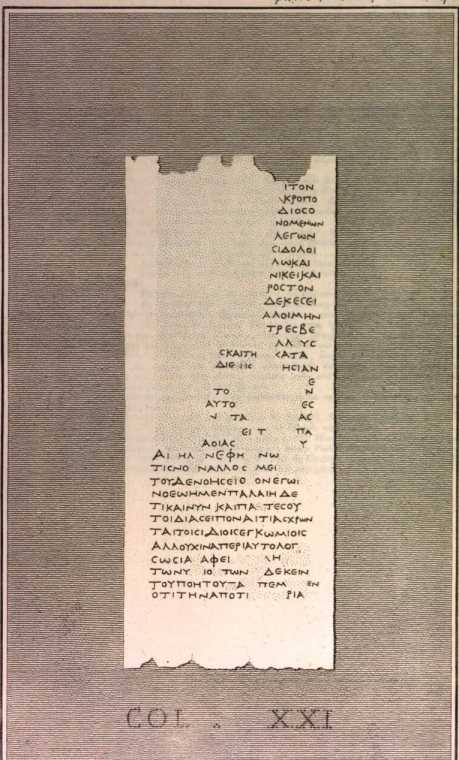 ΙΤΟΝ
ΚΡΟΠΟ
ΔΙΟϹΟ
ΝΟΜΕΝωΝ
ΛΕΓωΝ
ϹΙΔΟΛΟΙ
ΛωΚΑΙ
ΝΙΚΕΙΚΑΙ
ΡΟϹΤΟΝ
ΔΕΚΕϹΕΙ
ΑΛΟΙΜΗΝ
ΤΡΕϹΒΕ
ΛΛ ΥϹ
ϹΚΑΙΤΗ ϹΑΤΑ
ΗϹΙΑΝ
Ε
ΤΟ Ν
ΑΥΤΟ ΕϹ
ΤΑ ΑϹ
ΕΙ Τ ΠΑ
ΑΟΙΑϹ Υ
ΑΙ ΗΛ ΝΕΦΗ Νω
ΤΙϹΝΟ ΝΑΛΛΟϹ ΜΕΙ
ΤΟΥΔΕΝΟΗϹΕΙΟ ΟΝΕΓωΙ
ΝΟΕωΗΜΕΝΠΑΛΑΙΗ ΔΕ
ΤΙΚΑΙΝΥΝ ΚΑΙΠΑ ΤΕϹΟΥ
ΤΟΙΔΙΑϹΕΙΠΟΝΑΙΤΙΑϹΧΡωΝ
ΤΑΙΤΟΙϹΙΔΙΟΙϹΕΓΚωΜΙΟΙϹ
ΑΛΛΟΥΧΙΝΑΠΕΡΙΑΥΤΟΛΟΓ
ϹωϹΙΑ ΑΦΕΙ ΛΗ
ΤωΝΥ ΙΟ ΤωΝ ΔΕΚΕΙΝ
ΤΟΥΠΟΗΤΟΥ ΠΕΜ ΕΝ
ΟΤΙΤΗΝΑΠΟΤΙ ΡΙΑ
COL. XXI